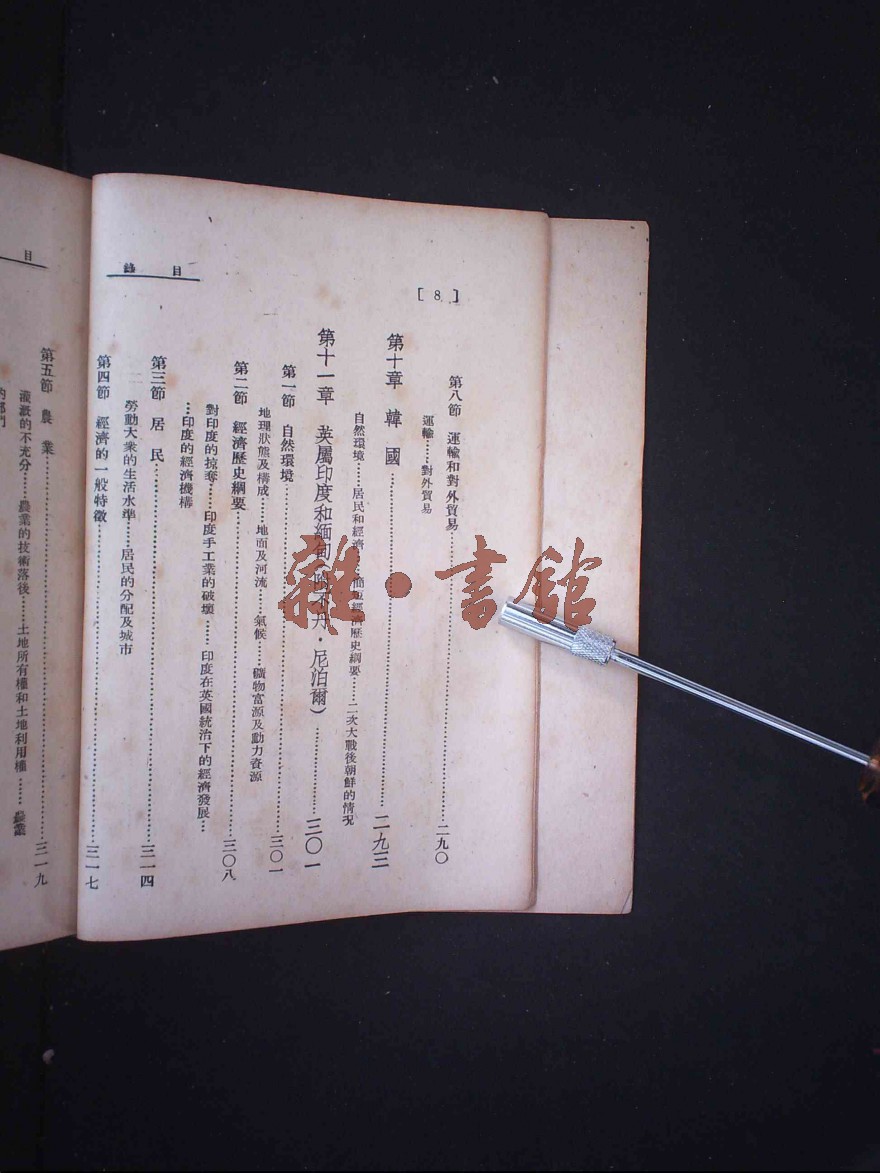 目錄
[8]
第八節 運輸和對外貿易……二九〇
運輸……對外貿易
第十章 韓國……二九三
自然環境……居民和經濟……簡短經濟歷史綱要……二次大戰後朝鮮的情况
第十一章 英屬印度和緬甸(附不丹·尼泊爾)……三〇一
第一節 自然環境……三〇一
地理狀態及構成……地面及河流……氣候……礦物富源及動力資源
第二節 經濟歷史綱要……三〇八
對印度的掠奪……印度手工業的破壞……印度在英國統治下的經濟發展…
…印度的經濟機構
第三節 居民……三一四
勞動大衆的生活水準……居民的分配及城市
第四節 經濟的一般特徵……三一七
目
第五節 農業……三一九
灌漑的不充分……農業的技術落後……土地所有權和土地利用權……農業
的部門
雜·書館